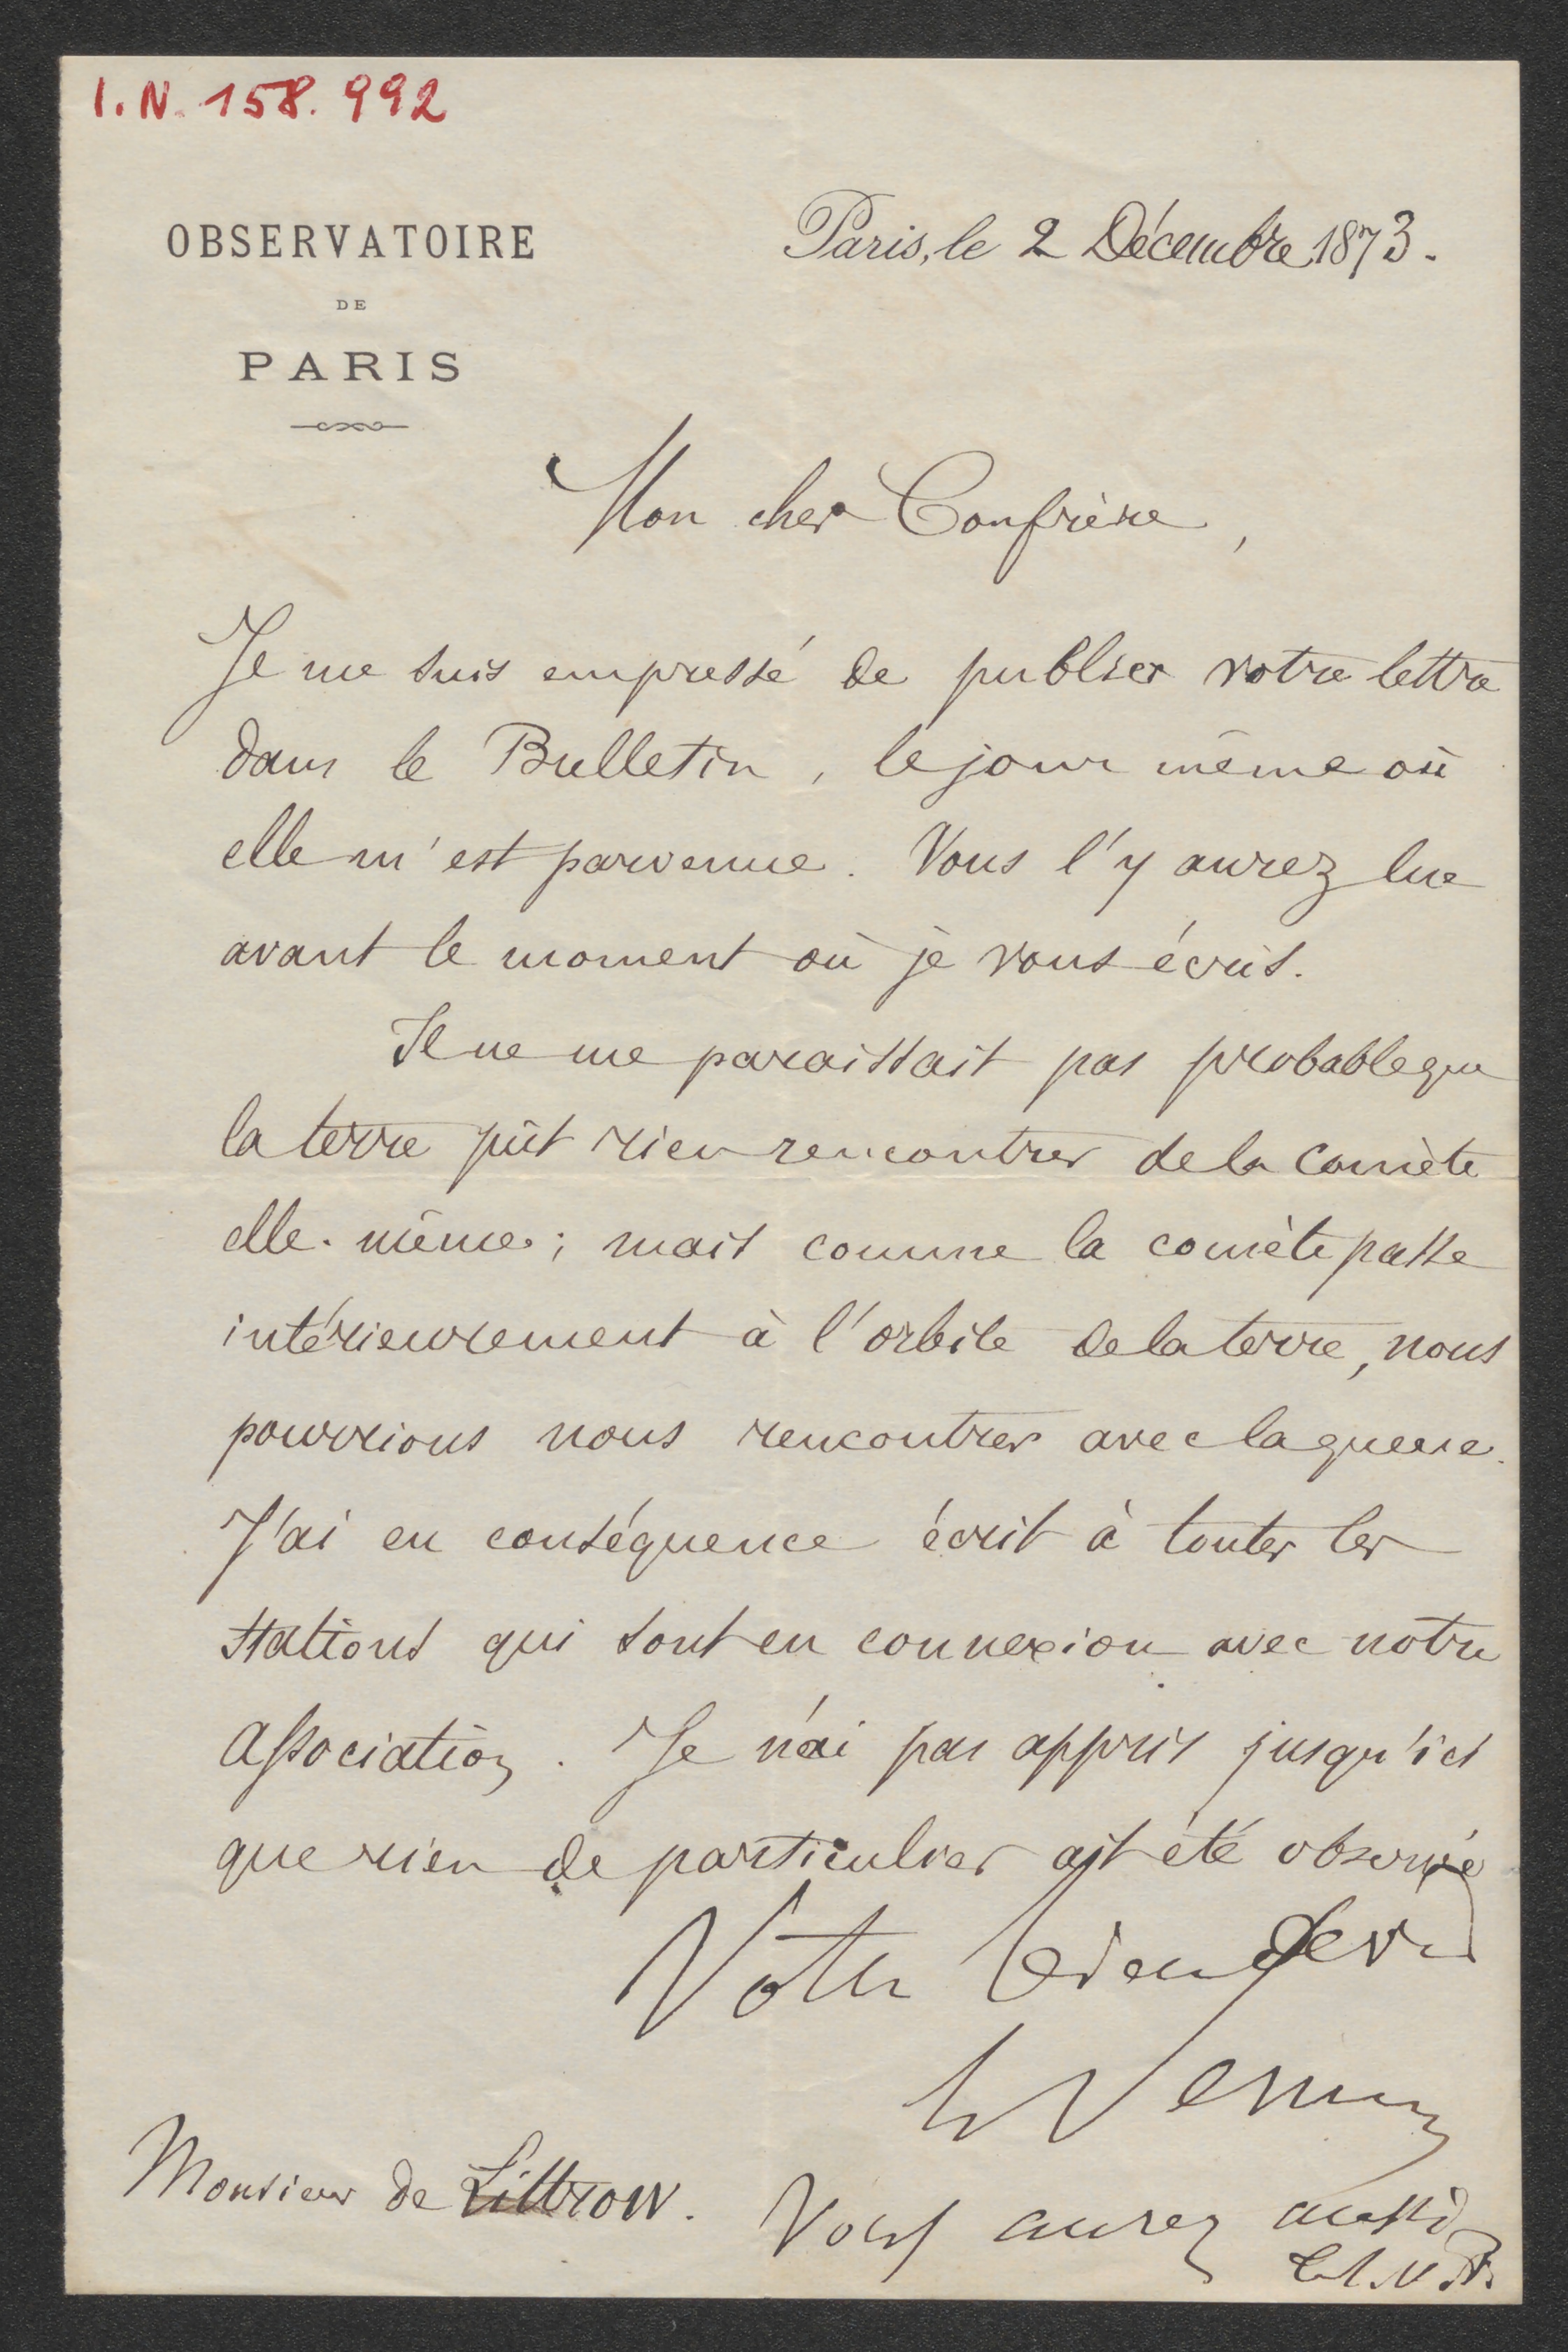 I.N. 158.992
OBSERVATOIRE
DE
PARIS
Paris, le 2 Décembre 1873.
Mon cher Confrère,
Je me suis empressé de publier votre lettre
dans le Bulletin, le jour même où
elle m'est parvenue. Vous l'y aurez lue
avant le moment où je vous écris.
Il ne me paraissait pas probable que
la terre pût rien rencontrer de la comète
elle-même; mais comme la comète passe
intérieurement à l'orbite de la terre, nous
pourrions nous rencontrer avec la queue.
J'ai en conséquence écrit à toutes les
stations qui sont en connexion avec notre
association. Je n'ai pas appris jusqu'ici
que rien de particulier ait été observé
Votre bien dévoué
Le Verrier
Monsieur de Littrow.
Vous aurez aussi